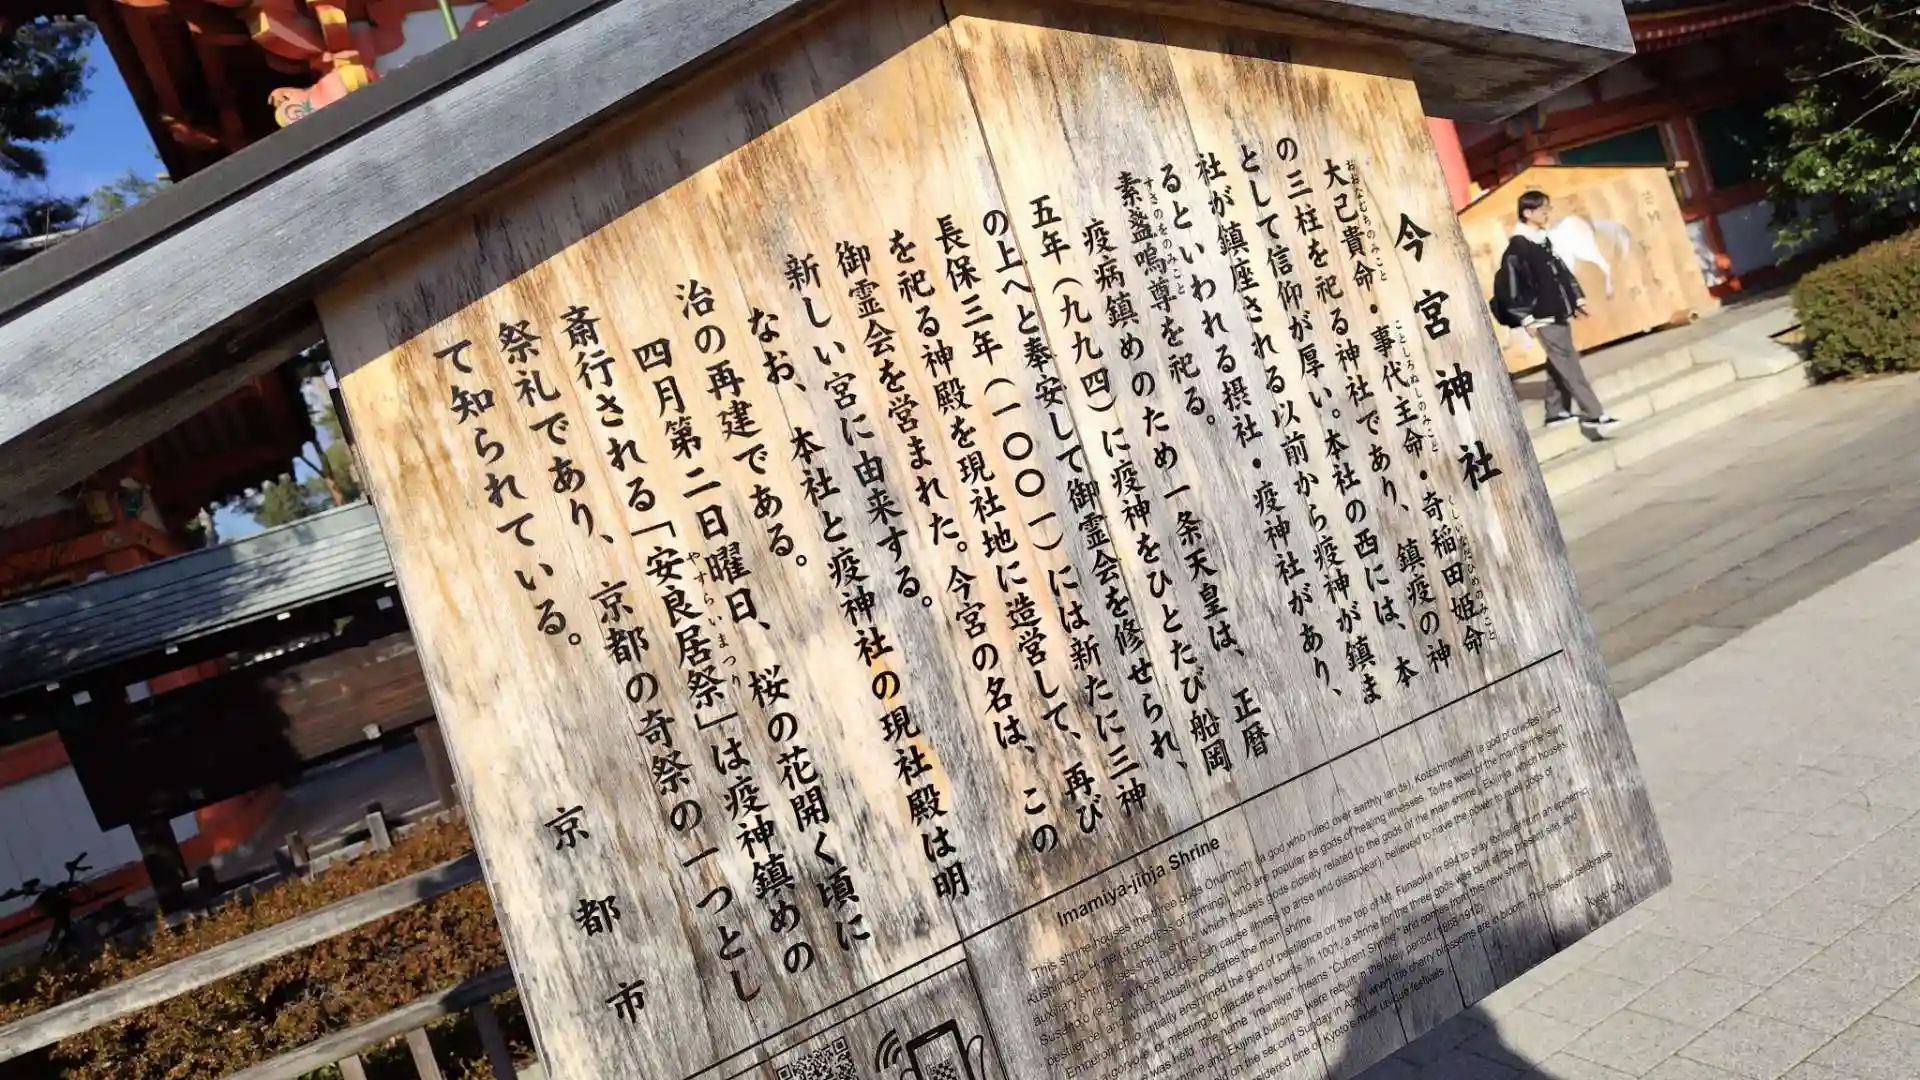 今宮神社
大己貴命・事代主命・奇稲田姫命
おおなむちのみこと
ことしろぬしのみこと
くしいなだひめのみこと
の三柱を祀る神社であり、鎮疫の神
として信仰が厚い。本社の西には、本
社が鎮座される以前から疫神が鎮ま
るといわれる摂社・疫神社があり、
素盞嗚尊を祀る。
すさのをのみこと
疫病鎮めのため一条天皇は、正暦
五年(九九四)に疫神をひとたび船岡
の上へと奉安して御霊会を修せられ、
長保三年(一〇〇一)には新たに三神
を祀る神殿を現社地に造営して、再び
御霊会を営まれた。今宮の名は、この
新しい宮に由来する。
なお、本社と疫神社の現社殿は明
治の再建である。
四月第二日曜日、桜の花開く頃に
斎行される「安良居祭」は疫神鎮めの
やすらいまつり
祭礼であり、京都の奇祭の一つとし
て知られている。
京都市
Imamiya-jinja Shrine
This shrine houses the three gods Onamuchi (a god who ruled over earthly lands), Kotoshironushi (a god of oracles) and
Kushinada-Hime (a goddess of farming), who are popular as gods of healing illnesses. To the west of the main shrine is an
auxiliary shrine (sessha, a shrine which houses gods closely related to the gods of the main shrine), Ekijinja, which houses
Susano'o (a god whose actions can cause illness to arise and disappear), believed to have the power to quell gods of
pestilence, and which actually predates the main shrine.
Emperor Ichijo initially enshrined the god of pestilence on the top of Mt. Funaoka in 994 to pray for relief from an epidemic,
or meeting to placate evil spirits. In 1001, a shrine for the three gods was built at the present site, and
was held. The name "Imamiya" means "Current Shrine," and comes from this new shrine.
shrine and Ekijinja buildings were rebuilt in the Meiji period (1868-1912).
on the second Sunday in April, when the cherry blossoms are in bloom. This festival celebrates
considered one of Kyoto's most unique festivals.
Kyoto City